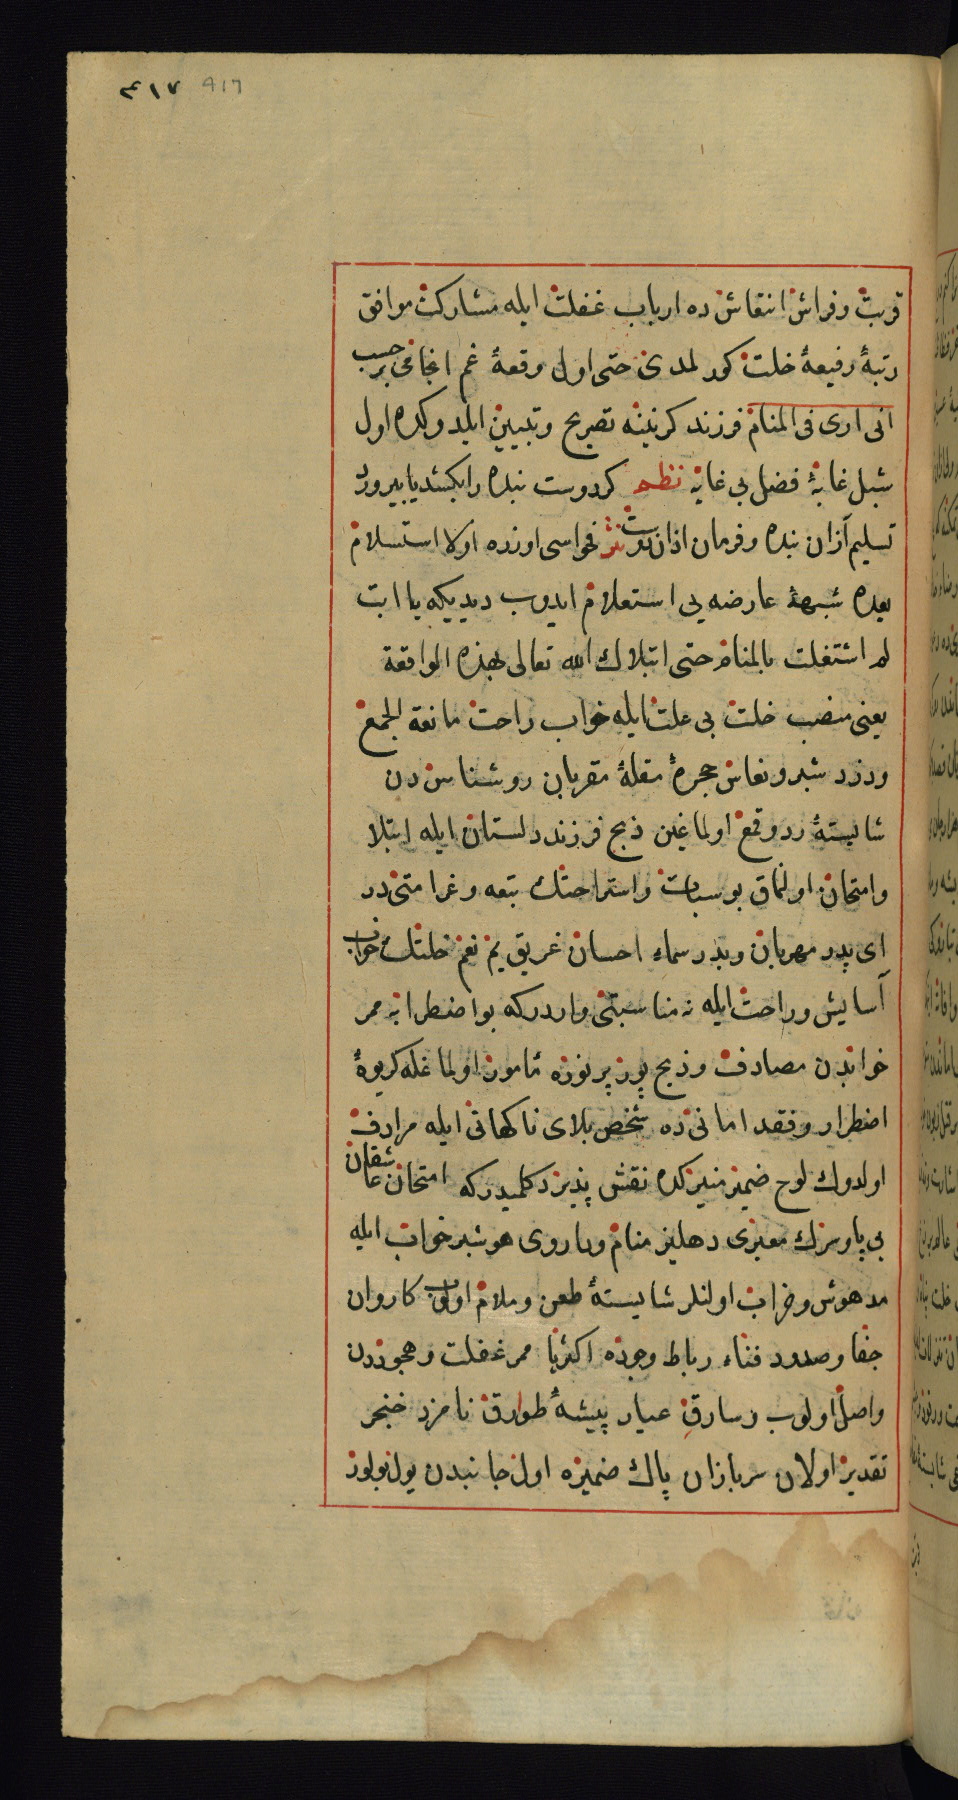 ٤١٧ 417
قربت وفراش انتقاش ده ارباب غفلت ايله مشاركت موافق
رتبۀ رفيعۀ خلت كورلمدى حتى اول وقعۀ غم انجامى بر حسب
انى ارى فى المنام فرزند كزينينه تصريح وتبيين ايلدوكده اول
شبل غابۀ فضل بى غايه نظم كر دوست بنده را بكشد يا بپرورد
تسليم از ان بنده وفرمان از ان دوست نثر فحواسى اوزره اولا استسلام
بعده شبهۀ عارضه يى استعلام ايدوب ديديكه يا ابت
لم اشتغلت بالمنام حتى ابتلاك الله تعالى بهذه الواقعة
يعنى منصب خلت بى علت ايله خواب راحت مانعة الجمع
ودزد شبرو نعاس حجرۀ مقلۀ مقربان روشناس دن
شايستۀ رد وقمع اولماغين ذبح فرزند دلستان ايله ابتلا
وامتحان اولنماق بو سبات واستراحتك تبعه وغرامتى در
اى پدر مهربان وبدر سماء احسان غريق يم نعم خلتك خواب
آسايش وراحت ايله نه مناسبتى واردركه بو اضطرابه ممر
خوابدن مصادف وذبح پور پر نوره مامور اولماغله كريوۀ
اضطرار وفقد امانى ده شخص بلاى ناكهانى ايله مرادف
اولدوك لوح ضمير منيركده نقش پذير دكلميدركه امتحان عاشقان
بى پا وسرك معبرى دهليز منام وداروى هوشبر خواب ايله
مدهوش وخراب اولنلر شايستۀ طعن وملام اولوب كاروان
جفا وصدود فناء رباط وجوده اكثريا ممر غفلت وهجوددن
واصل اولوب وسارق عيار پيشۀ طوارق نامزد خنجر
تقدير اولان سربازان پاك ضميره اول جانبدن يول بولور